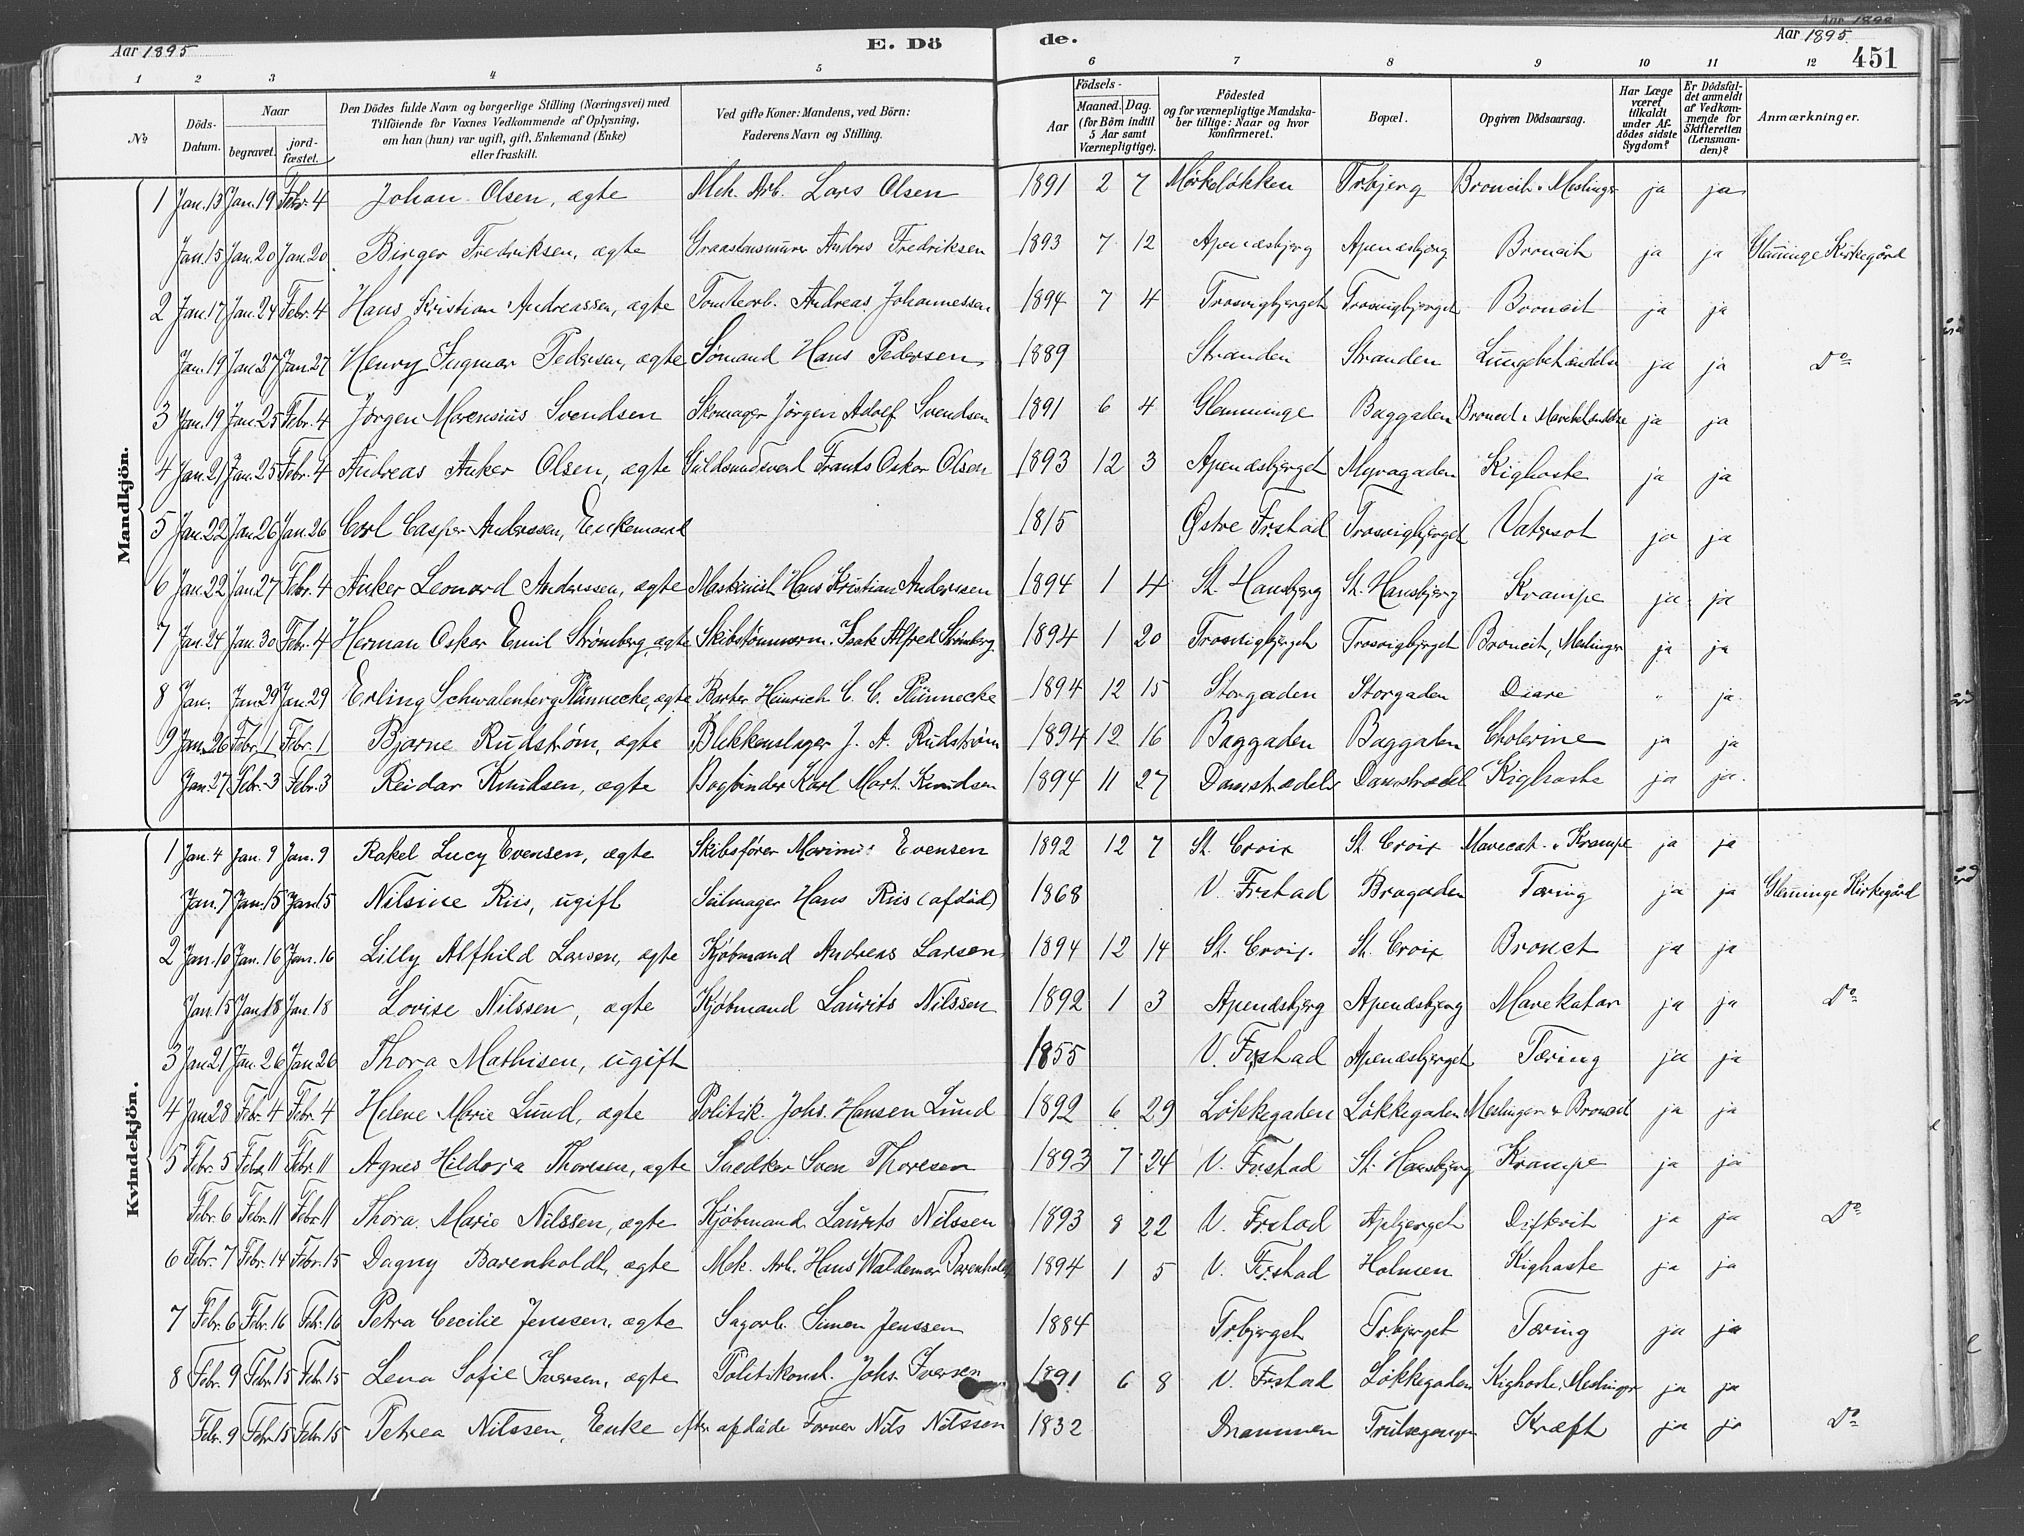 Aar 1895
E. Dö de.
Aar 1895.
451
1 2 3 4 5 6 7 8 9 10 11 12
No
Döds-Datum.
Naar begravet. jordfæstet.
Den Dödes fulde Navn og borgerlige Stilling (Næringsvei) med Tilföiende for Voxnes Vedkommende af Oplysning, om han (hun) var ugift, gift, Enkemand (Enke) eller fraskilt.
Ved gifte Koner: Mandens, ved Börn: Faderens Navn og Stilling.
Födsels- Aar Maaned. Dag. (for Börn indtil 5 Aar samt Værnepligtige).
Födested og for værnepligtige Mandskaber tillige: Naar og hvor konfirmeret.
Bopæl.
Opgiven Dödsaarsag.
Har Læge været tilkaldt under Afdödes sidste Sygdom?
Er Dödsfaldet anmeldt af Vedkommende for Skifteretten (Lensmanden)?
Anmærkninger.
Mandkjön.
1 Jan. 13 Jan. 19 Febr. 4 Johan Olsen, ægte Mek. Arb. Lars Olsen 1891 2 7 Mørkeløkken Trbjerg Broncit. Meslinger ja ja
Jan. 15 Jan. 20 Jan. 20 Birger Fredriksen, ægte Graastensmurer Anders Fredriksen 1893 7 12 Apenæsbjerg Apenæsbjerg Broncit ja ja Glemminge Kirkegård
2 Jan. 17 Jan. 24 Febr. 4 Hans Kristian Andreassen, ægte Tomtearb. Andreas Johannessen 1894 7 4 Trosvigbjerget Trosvigbjerget Broncit ja ja
Jan. 19 Jan. 27 Jan. 27 Henry Ingmar Pedersen, ægte Sømand Hans Pedersen 1889 Stranden Stranden Lungebetændelse ja ja Do
3 Jan. 19 Jan. 25 Febr. 4 Jørgen Marensius Svendsen Skomager Jørgen Adolf Svendsen 1891 6 4 Glemminge Baggaden Broncit ja ja
4 Jan. 21 Jan. 25 Febr. 4 Andreas Anker Olsen, ægte Guldsmedsvend Frants Oskar Olsen 1893 12 3 Apenæsbjerget Myragaden Kighoste ja ja
5 Jan. 22 Jan. 26 Jan. 26 Carl Casper Anderssen, Enkemand 1815 Østre Fr.stad Trosvigbjerget Vatersot ja ja
6 Jan. 22 Jan. 27 Febr. 4 Anker Leonard Anderssen, ægte Maskinist Hans Kristian Anderssen 1894 1 4 St. Hansbjerg St. Hansbjerg Krampe ja ja
7 Jan. 24 Jan. 30 Febr. 4 Herman Oskar Emil Strømberg, ægte Skibstømmerm. Isak Alfred Strømberg 1894 1 20 Trosvigbjerget Trosvigbjerget Broncit, Meslinger ja ja
8 Jan. Jan. 29 Jan. 29 Erling Schwalenberg Plünnecke, ægte Barber Heinrich C. C. Plünnecke 1894 12 15 Storgaden Storgaden Diare " ja
9 Jan. 26 Febr. 1 Febr. 1 Bjarne Rudstrøm, ægte Blikkenslager J. A. Rudstrøm 1894 12 16 Baggaden Baggaden Cholerine ja ja
Jan. 27 Febr. 3 Febr. 3 Reidar Knudsen, ægte Bogbinder Karl Mart. Knudsen 1894 11 27 Damstrædet Damstrædet Kighoste ja ja
Kvindekjön.
1 Jan. 4 Jan. 9 Jan. 9 Rakel Lucy Evensen, ægte Skibsfører Marinius Evensen 1892 12 7 St. Croix St. Croix Mavecat. Krampe ja ja
Jan. 7 Jan. 15 Jan. 15 Nilsine Riis, ugift Seilmager Hans Riis (afdød) 1868 V. Fr.stad Brogaden Tæring ja ja Glemminge Kirkegård
2 Jan. 10 Jan. 16 Jan. 16 Lilly Alfhild Larsen, ægte Kjøbmand Andreas Larsen 1894 12 14 St. Croix. St. Croix Broncit ja ja
Jan. 15 Jan. 18 Jan. 18 Lovise Nilssen, ægte Kjøbmand Laurits Nilssen 1892 1 3 Apenæsbjerg Apenæsbjerg Mavekatar ja ja Do
3 Jan. 21 Jan. 26 Jan. 26 Thora Mathisen, ugift 1855 V. Fr.stad Apenæsbjerget Tæring ja ja
4 Jan. 28 Febr. 4 Febr. 4 Helene Marie Lund, ægte Politik. Johs. Hansen Lund 1892 6 29 Løkkegaden Løkkegaden Meslinger & Broncit ja ja
5 Febr. 5 Febr. 11 Febr. 11 Agnes Hildora Thoresen, ægte Snedker Sven Thoresen 1893 7 24 V. Fr.stad St. Hansbjerg Krampe ja ja
Febr. 6 Febr. 11 Febr. 11 Thora Marie Nilssen, ægte Kjøbmand Laurits Nilssen 1893 8 22 V. Fr.stad Apbjerget Difterit ja ja Do
6 Febr. 7 Febr. 14 Febr. 15 Dagny Barenholdt, ægte Mek. Arb. Hans Waldemar Barenholdt 1894 1 5 V. Fr.stad Holmen Kighoste ja ja
7 Febr. 6 Febr. 16 Febr. 16 Petra Cecilie Jenssen, ægte Sagarb. Simen Jenssen 1884 Tr.bjerget Tr.bjerget Tæring ja ja
8 Febr. 9 Febr. 15 Febr. 15 Lena Sofie Iversen, ægte Politikonst. Johs. Iversen 1891 6 8 V. Fr.stad Løkkegaden Kighoste, Meslinger ja ja
Febr. 9 Febr. 15 Febr. 15 Petrea Nilssen, Enke efter afdøde Former Nils Nilssen 1832 Drammen Kræft ja ja Do